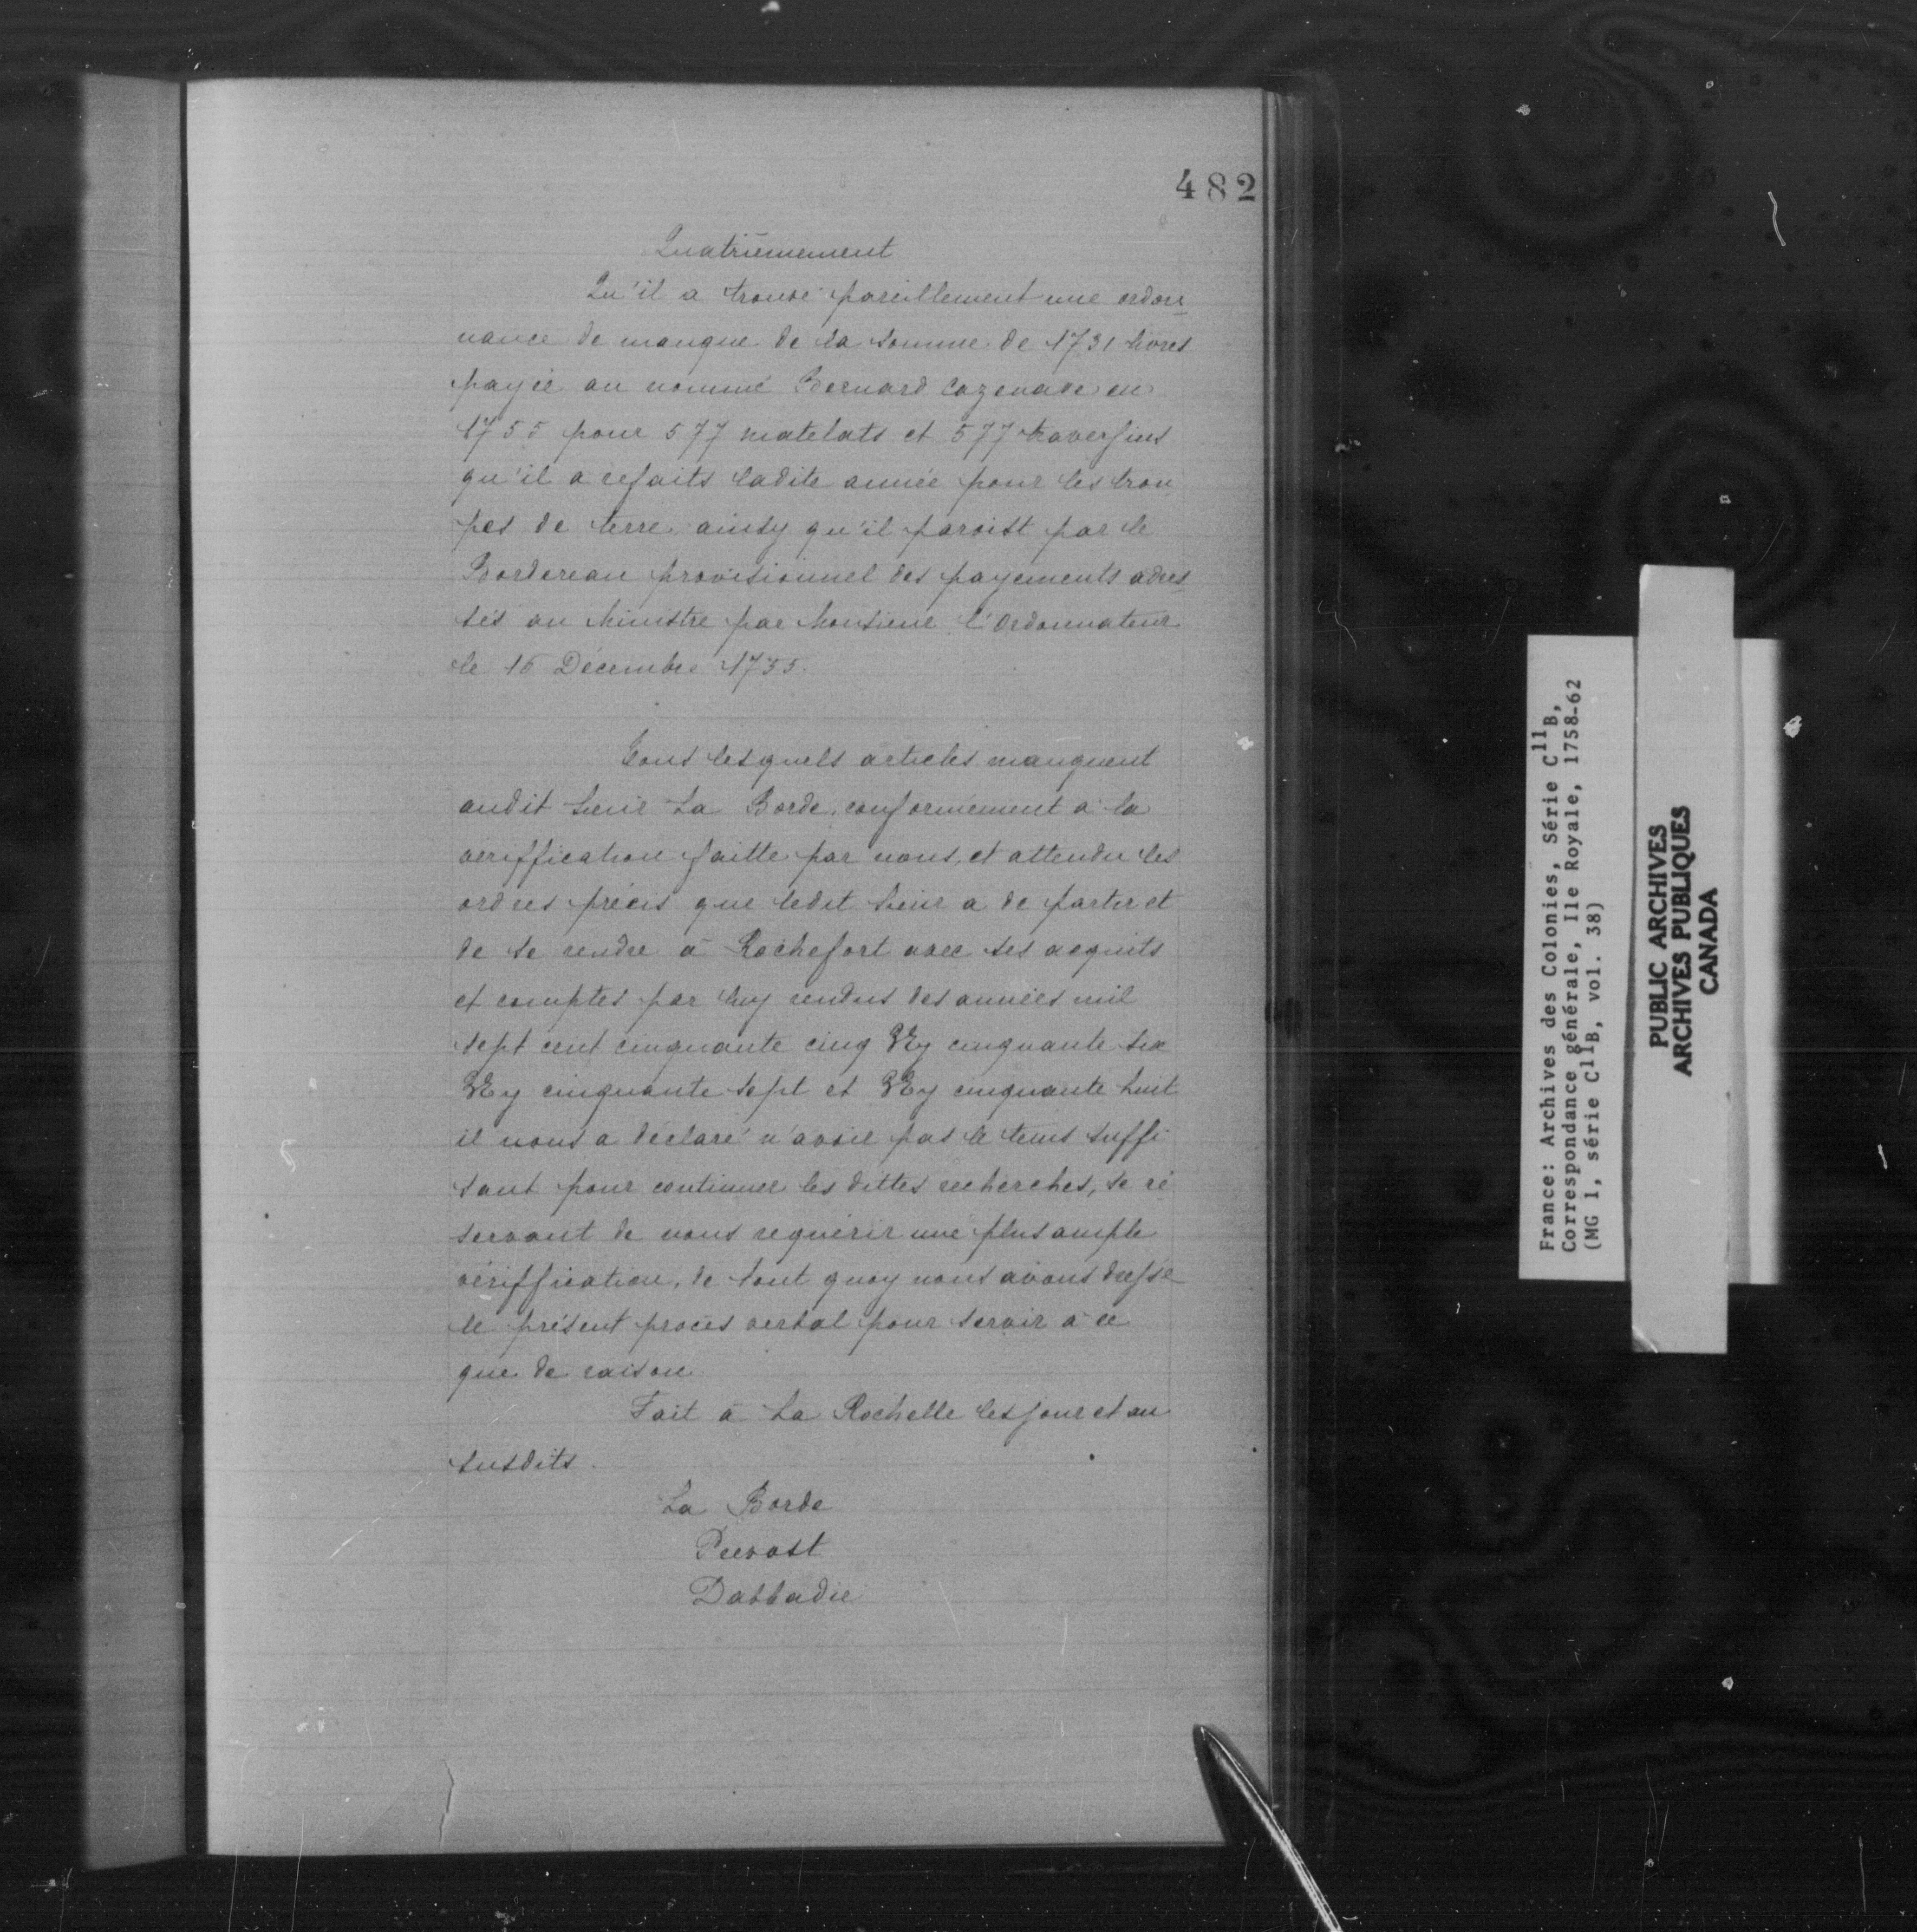 482
Quatrièmement
Qu'il a trouvé pareillement une ordon
nance de manque de la somme de 1731 livres
payée au nommé Bernard Cazenave en
1755 pour 577 matelats et 577 traversins
qu'il a refaits ladite année pour les trou
pes de terre, ainsy qu'il paroist par le
Bordereau provisionnel des payements adres
sés au Ministre par Monsieur l'Ordonnateur
le 15 Décembre 1755.
Tous lesquels articles manquent
audit Sieur La Borde, conformément à la
vériffication faitte par nous, et attendu les
ordres précis que ledit Sieur a de partir et
de se rendre à Rochefort avec ses acquits
et comptes par luy rendus des années mil
sept cent cinquante cinq, cinquante six
cinquante sept et cinquante huit
il nous a déclaré n'avoir pas le tems suffi
sant pour continuer les dittes recherches, se ré
servant de nous requérir une plus ample
vériffication, de tout quoy nous avons dressé
le présent procès verbal pour servir à ce
que de raison
Fait à La Rochelle les jour et an
susdits.
La Borde
Prevost
Dabbadie
France: Archives des Colonies, Série C11B,
Correspondance générale, Ile Royale, 1758-62
(MG 1, série C11B, vol. 38)
PUBLIC ARCHIVES
ARCHIVES PUBLIQUES
CANADA